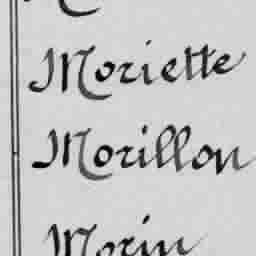 Moriette
Morillon
Morin